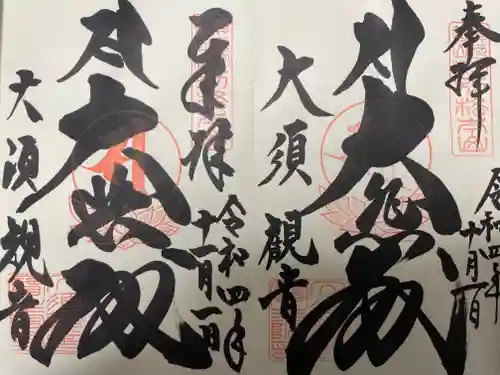 奉拝
令和四年
十月一日
大悲殿
大須
觀音
奉拝
令和四年
十一月一日
大悲殿
大須観音